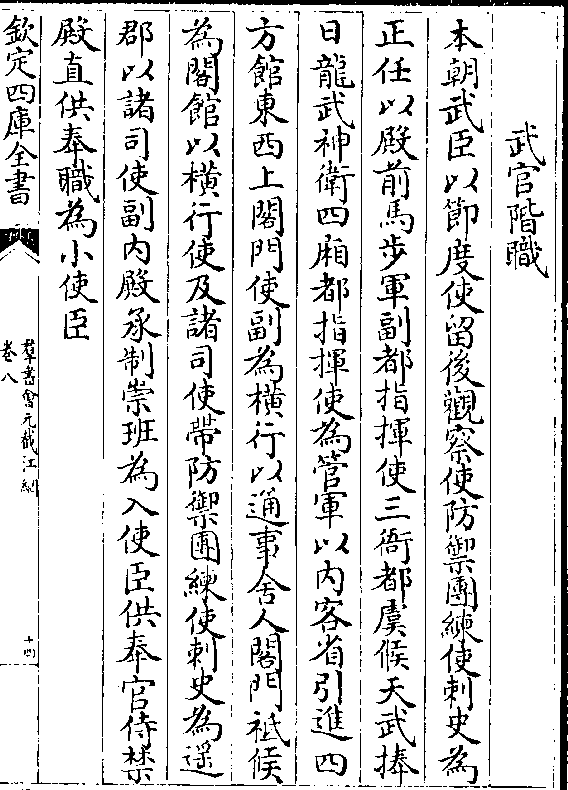 武官階職
本朝武臣以節度使留後觀察使防禦團練使刺史為
正任以殿前馬步軍副都指揮使三衙都虞候天武捧
日龍武神衛四廂都指揮使為管軍以内客省引進四
方館東西上閤門使副為横行以通事舍人閤門祗候
為閤館以横行使及諸司使帶防禦團練使刺史為遥
郡以諸司使副内殿承制崇班為入使臣供奉官侍禁
殿直供奉職為小使臣
欽定四庫全書
羣書會元截江網
卷八
十四